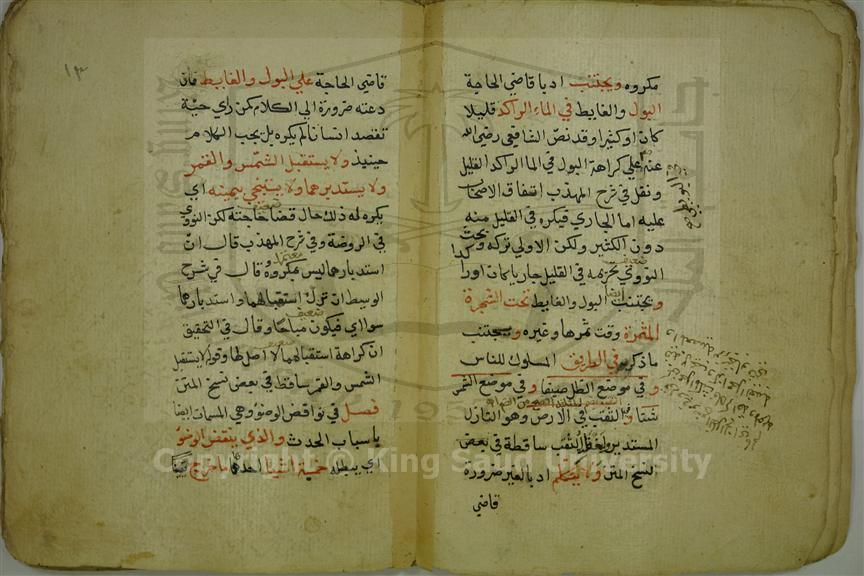 مكروه ويجتنب ادبا قاضي الحاجة
البول والغايط في الماء الراكد قليلا
كان او كثيرا وقد نص الشافعي رضي الله
عنه علي كراهة البول في الما الراكد القليل
ونقل في شرح المهذب اتفاق الاصحاب
عليه اما الجاري فيكره في القليل منه
دون الكثير ولكن الاولي تركه وبحث
النووي تحريمه في القليل جاريا كان او راكدا
ويجتنب البول والغايط تحت الشجرة
المثمرة وقت ثمرها وغيره ويجتنب
ماذكر في الطريق المسلوك للناس
وفي موضع الظل صيفا وفي موضع الشمس
شتا وفي الثقب في الارض وهو النازل
المستدير ولفظ الثقب ساقطة في بعض
نسخ المتن ولا يتكلم ادبا لغير ضرورة
قاضي
١٣
قاضي الحاجة علي البول والغايط فان
دعته ضرورة الي الكلام كمن راي حية
تقصد انسانا لم يكره بل يجب الكلام
حينيذ ولا يستقبل الشمس والقمر
ولا يستدبرهما ولا يستنجي بيمينه اي
يكره له ذلك حال قضا حاجته لكن النووي
في الروضة وفي شرح المهذب قال ان
استدبارهما ليس بمكروه وقال في شرح
الوسيط ان ترك استقبالهما واستدبارهما
سوا اي فيكون مباحا وقال في التحقيق
ان كراهة استقبالهما لا اصل لها وقوله ولا يستقبل
الشمس والقمر ساقط في بعض نسخ المتن
فصل في نواقض الوضو وهي المسمات ايضا
باسباب الحدث والذي ينقض الوضو
اي يبطله خمسة اشيا احدها ما خرج
Copyright © King Saud University
1957